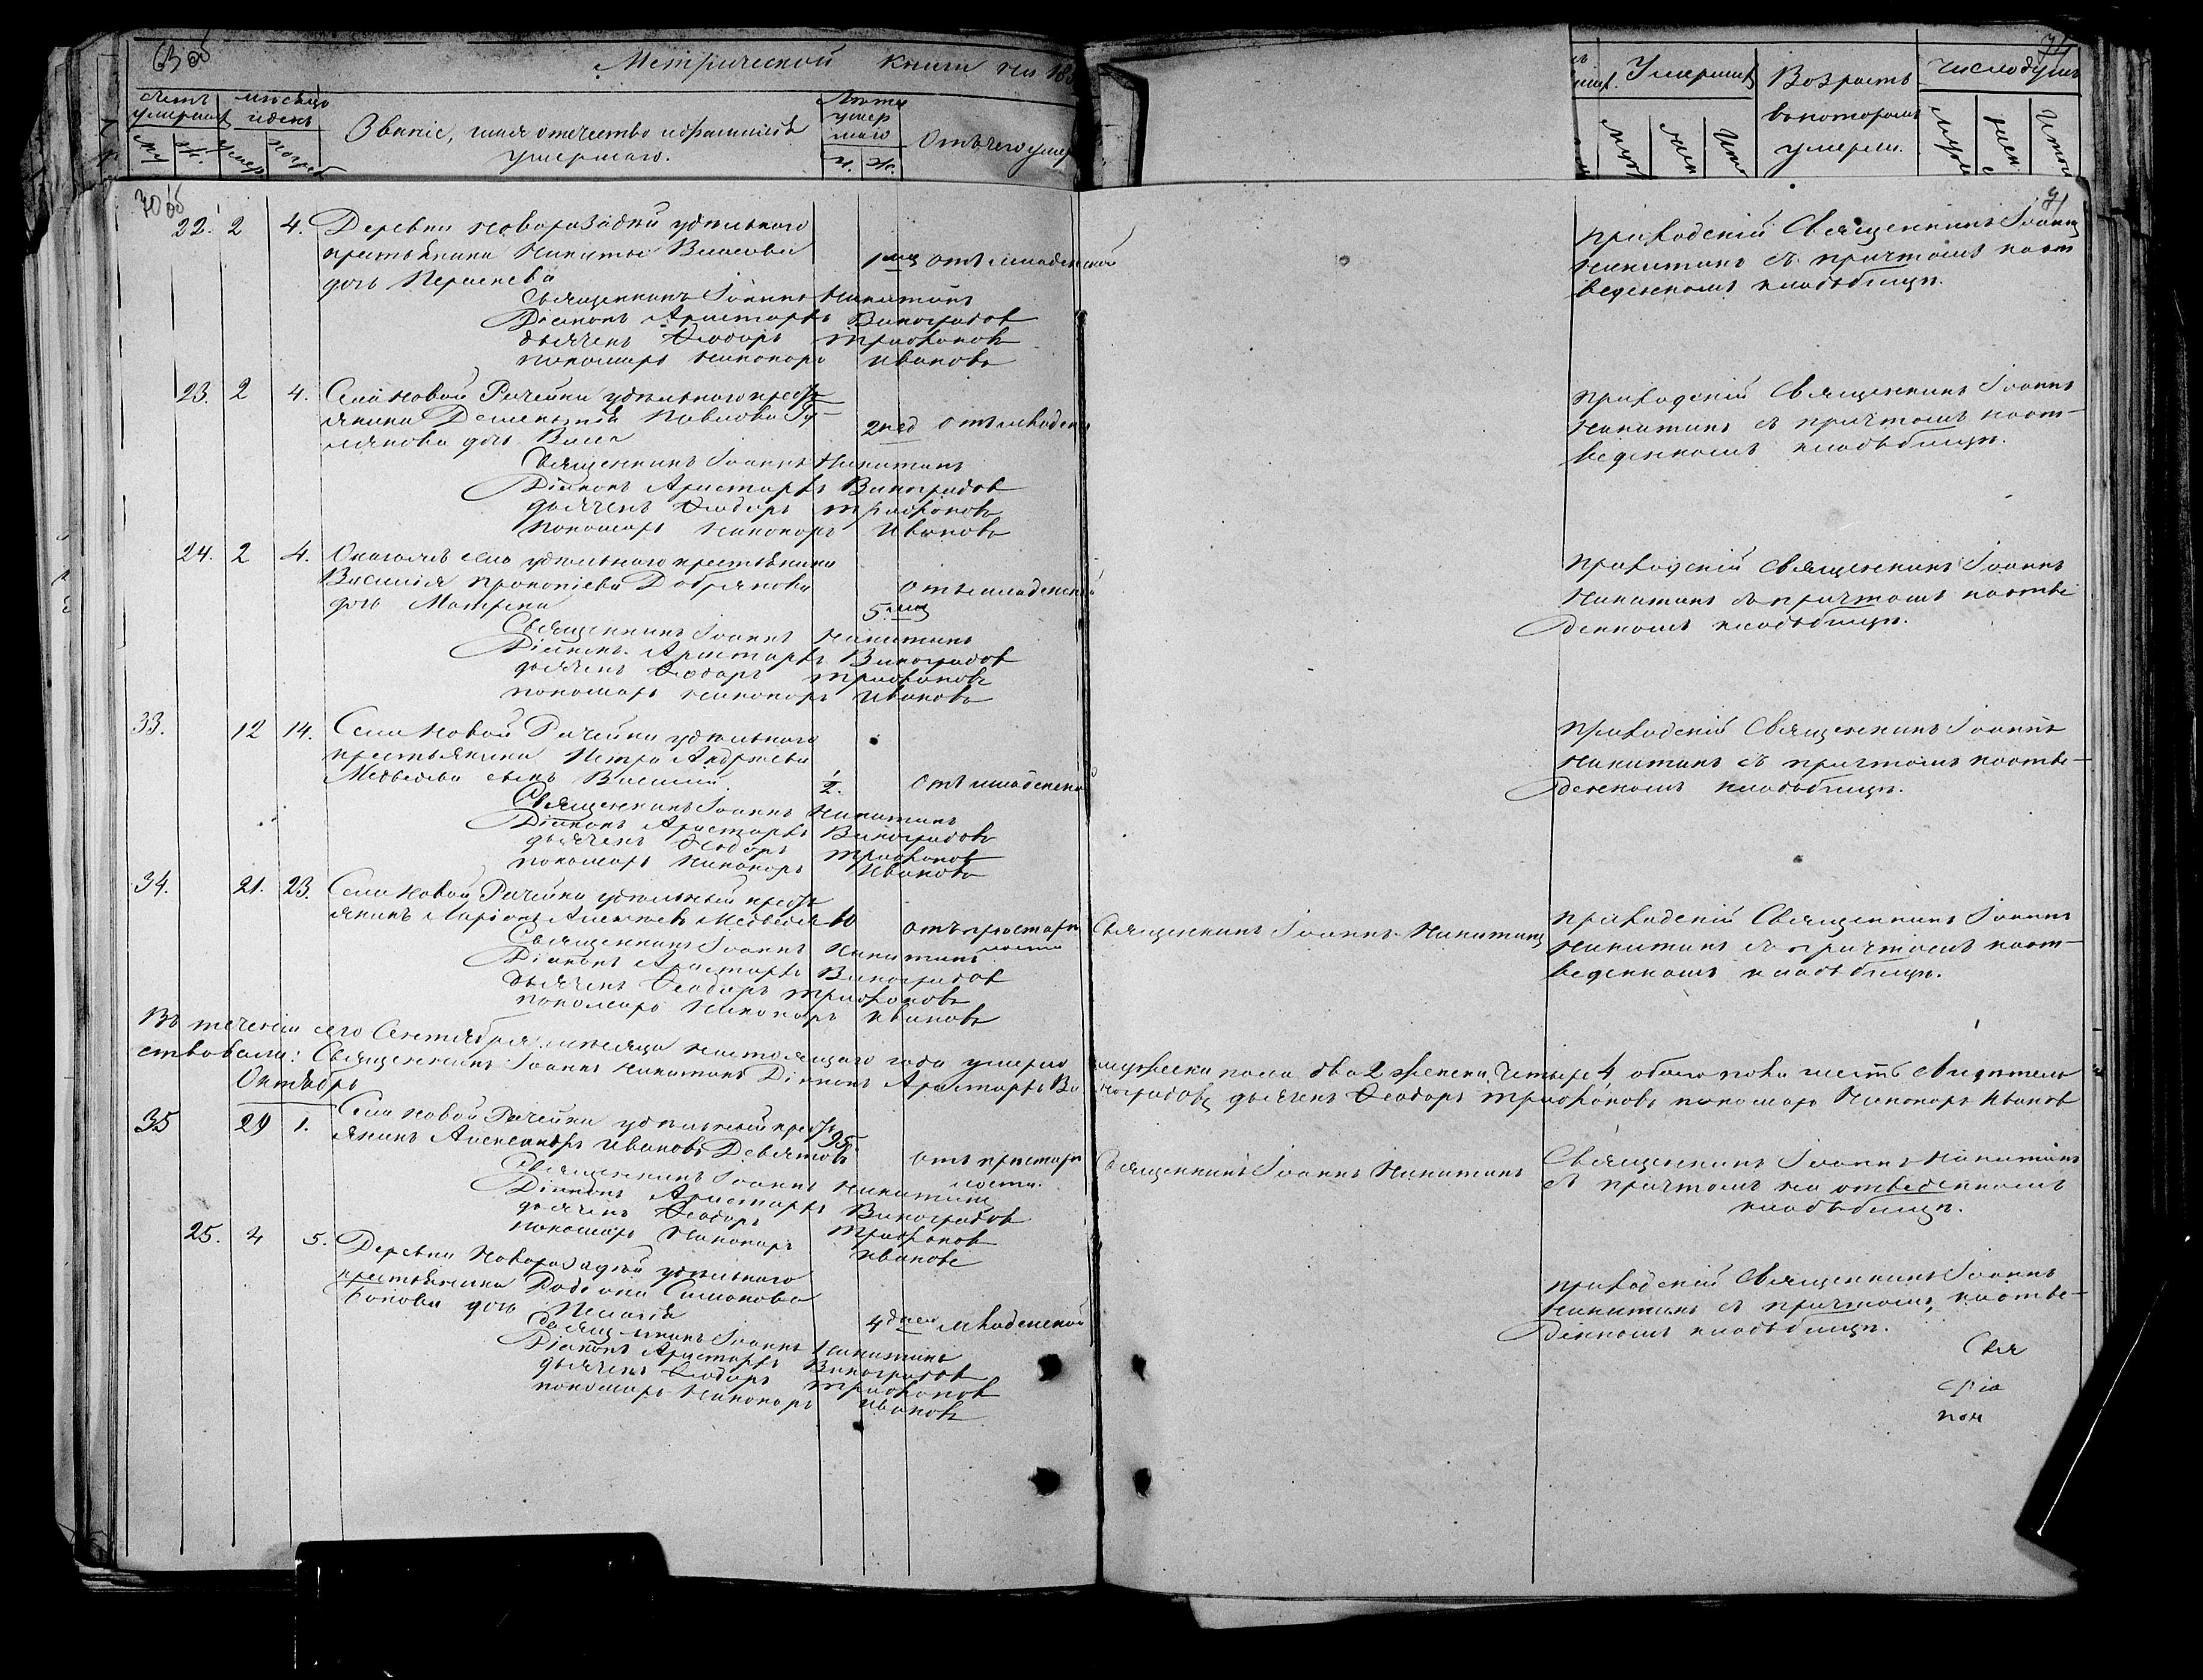 63 об
Метрической книги на 18
Счетъ умершихъ
Месяцъ и день
Званіе, имя отечество и фамилія
умершаго.
Лета умершаго
М. Ж.
Отъ чего умер
Умершихъ
Возрастъ
въ которомъ
умерли.
число душъ
70 об
71
22. 2 4. Деревни Новоразадной удельнаго
крестьянина Никиты Власова
дочь
1 мец отъ младенской
Священникъ Іоаннъ Никитинъ
Діаконъ Аристархъ Виноградов
дьячекъ Ѳеодоръ Трифоновъ
пономарь Никаноръ Ивановъ
Приходскій Священникъ Іоаннъ
Никитинъ съ причтомъ на от
веденномъ кладбище.
23. 2 4. Села Новой Рачейки удельнаго кресть
янина Дементія Павлова Гу-
лякова дочь Васса
2 нед отъ младен
Священникъ Іоаннъ Никитинъ
Діаконъ Аристархъ Виноградов
дьячекъ Ѳеодоръ Трифоновъ
пономарь Никаноръ Ивановъ
Приходскій Священникъ Іоаннъ
Никитинъ съ причтомъ на от-
веденномъ кладбище.
24. 2 4. Онагожъ села удельнаго крестьянина
Василія Прокопіева Добрякова
дочь Матрена
5 мец
отъ младенской
Священникъ Іоаннъ Никитинъ
Діаконъ Аристархъ Виноградов
дьячекъ Ѳеодоръ Трифоновъ
пономарь Никаноръ Ивановъ
Приходскій Священникъ Іоаннъ
Никитинъ съ причтомъ на отве
денномъ кладбище.
33. 12 14. Села Новой Рачейки удельнаго
крестьянина Петра Андреева
Медведева сынъ Василій
1/2. отъ младенской
Священникъ Іоаннъ Никитинъ
Діаконъ Аристархъ Виноградовъ
дьячекъ Ѳеодоръ Трифонов
пономарь Никаноръ Ивановъ
Приходскій Священникъ Іоаннъ
Никитинъ съ причтомъ на отве-
денномъ кладбище.
34. 21. 23. Села Новой Рачейки удельный кресть
янинъ Ларіонъ Алексеевъ Медведев
отъ престаре
лости
Священникъ Іоаннъ Никитинъ
Діаконъ Аристархъ Виноградов
дьячекъ Ѳеодоръ Трифоновъ
пономарь Никаноръ Ивановъ
Священникъ Іоаннъ Никитинъ
Приходскій Священникъ Іоаннъ
Никитинъ съ причтомъ на от-
веденномъ кладбище.
Въ теченіи сего Сентября месяца настоящаго года умерло мужеска пола два 2 женска четыре 4 обоего пола шесть свидетель
ствовали: Священникъ Іоаннъ Никитинъ Діаконъ Аристархъ Ви ноградовъ дьячекъ Ѳеодоръ Трифоновъ пономарь Никаноръ Иванов
Октябрь
35 29 1. Села Новой Рачейки удельный кресть
янинъ Александръ Ивановъ Девятовъ
95
отъ престаре
лости.
Священникъ Іоаннъ Никитинъ
Діаконъ Аристархъ Виноградов
дьячекъ Ѳеодоръ Трифонов
пономарь Никаноръ Ивановъ
Священникъ Іоаннъ Никитинъ
Священникъ Іоаннъ Никитинъ
съ причтомъ на отведенномъ
кладбище.
25. 4 5. Деревни Новоразадной удельнаго
крестьянина Родіона Симонова
дочь Пелагея
4 дней младенской
Священникъ Іоаннъ Никитинъ
Діаконъ Аристархъ Виноградов
дьячекъ Ѳеодоръ Трифонов
пономарь Никаноръ Ивановъ
Приходскій Священникъ Іоаннъ
Никитинъ съ причтомъ, на отве-
денномъ кладбище.
Свя
Діа
пон